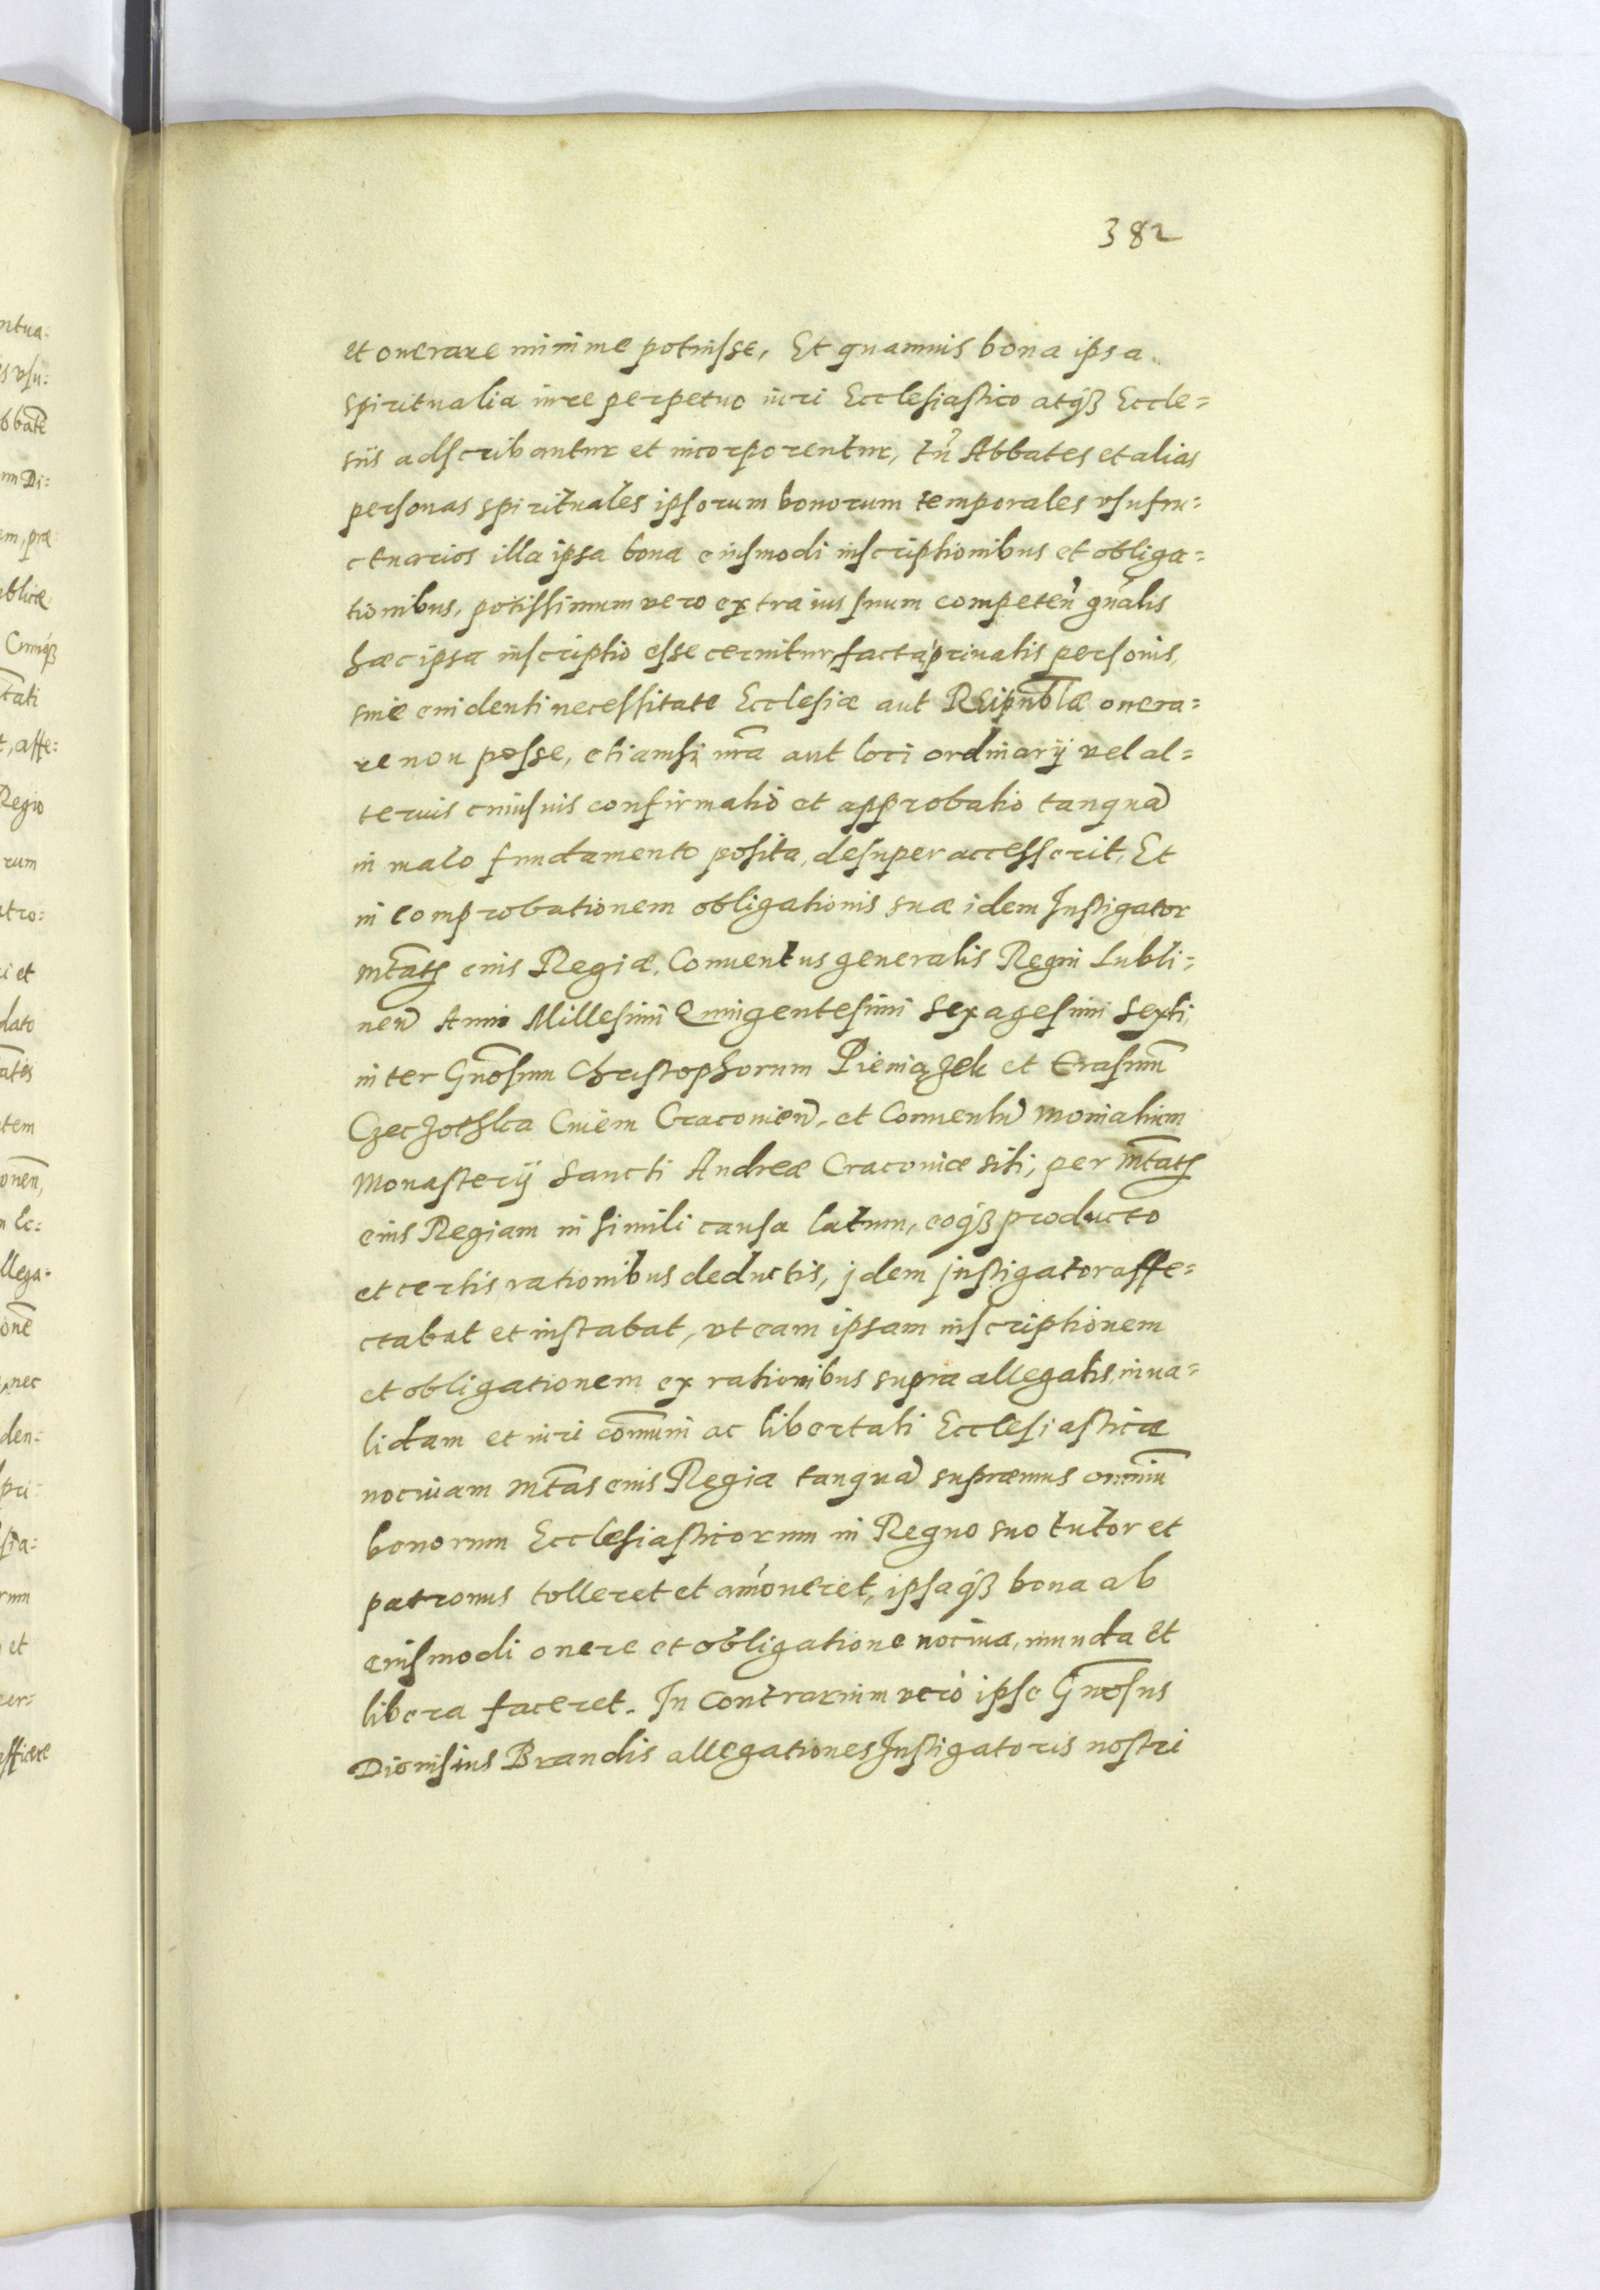 382
et onerare minime potuisse, Et quamuis bona ipsa
spiritualia iure perpetuo iuri Ecclesiastico atq₃ Eccle=
siis adscribantur et incorporentur, tñ Abbates et alias
personas spirituales ipsorum bonorum temporales vsufru=
ctuarios illa ipsa bona eiusmodi inscriptionibus et obliga=
tionibus, potissimum vero extra ius suum competeñ gñalis
hæc ipsa inscriptio esse cernitur, facta priuatis personis,
sine euidenti necessitate Ecclesiæ aut Reipublæ onera=
re non posse, etiamsi nr̃a aut loci ordinarij vel al=
terius cuiusuis confirmatio et approbatio tanquã
in malo fundamento posita, desuper accesserit, Et
in comprobationem obligationis suæ idem Instigator
mtats eius Regiæ, Conuentus generalis Regni Lubli=
neñ Anni Millesimi Quingentesimi Sexagesimi Sexti,
inter Gnosum Christophorum Pieniązek et Erasmũ
Czeczothka Ciuem Cracouieñ, et Conuentũ monialium
Monasterij Sancti Andreæ Cracouiæ siti, per mtats
eius Regiam in simili causa latum, eoq₃ producto
et certis rationibus deductis, jdem jnstigator affe=
ctabat et instabat, vt eam ipsam inscriptionem
et obligationem ex rationibus supra allegatis, inua=
lidam et iuri cõmuni ac libertati Ecclesiasticæ
nociuam mtas eius Regia tanquã supræmus omniũ
bonorum Ecclesiasticorum in Regno suo tutor et
patronus tolleret et am̃oueret, ipsaq₃ bona ab
eiusmodi onere et obligatione nociua, munda et
libera faceret. In contrarium vero ipse Gnosus
Dionisius Brandis allegationes Instigatoris nostri